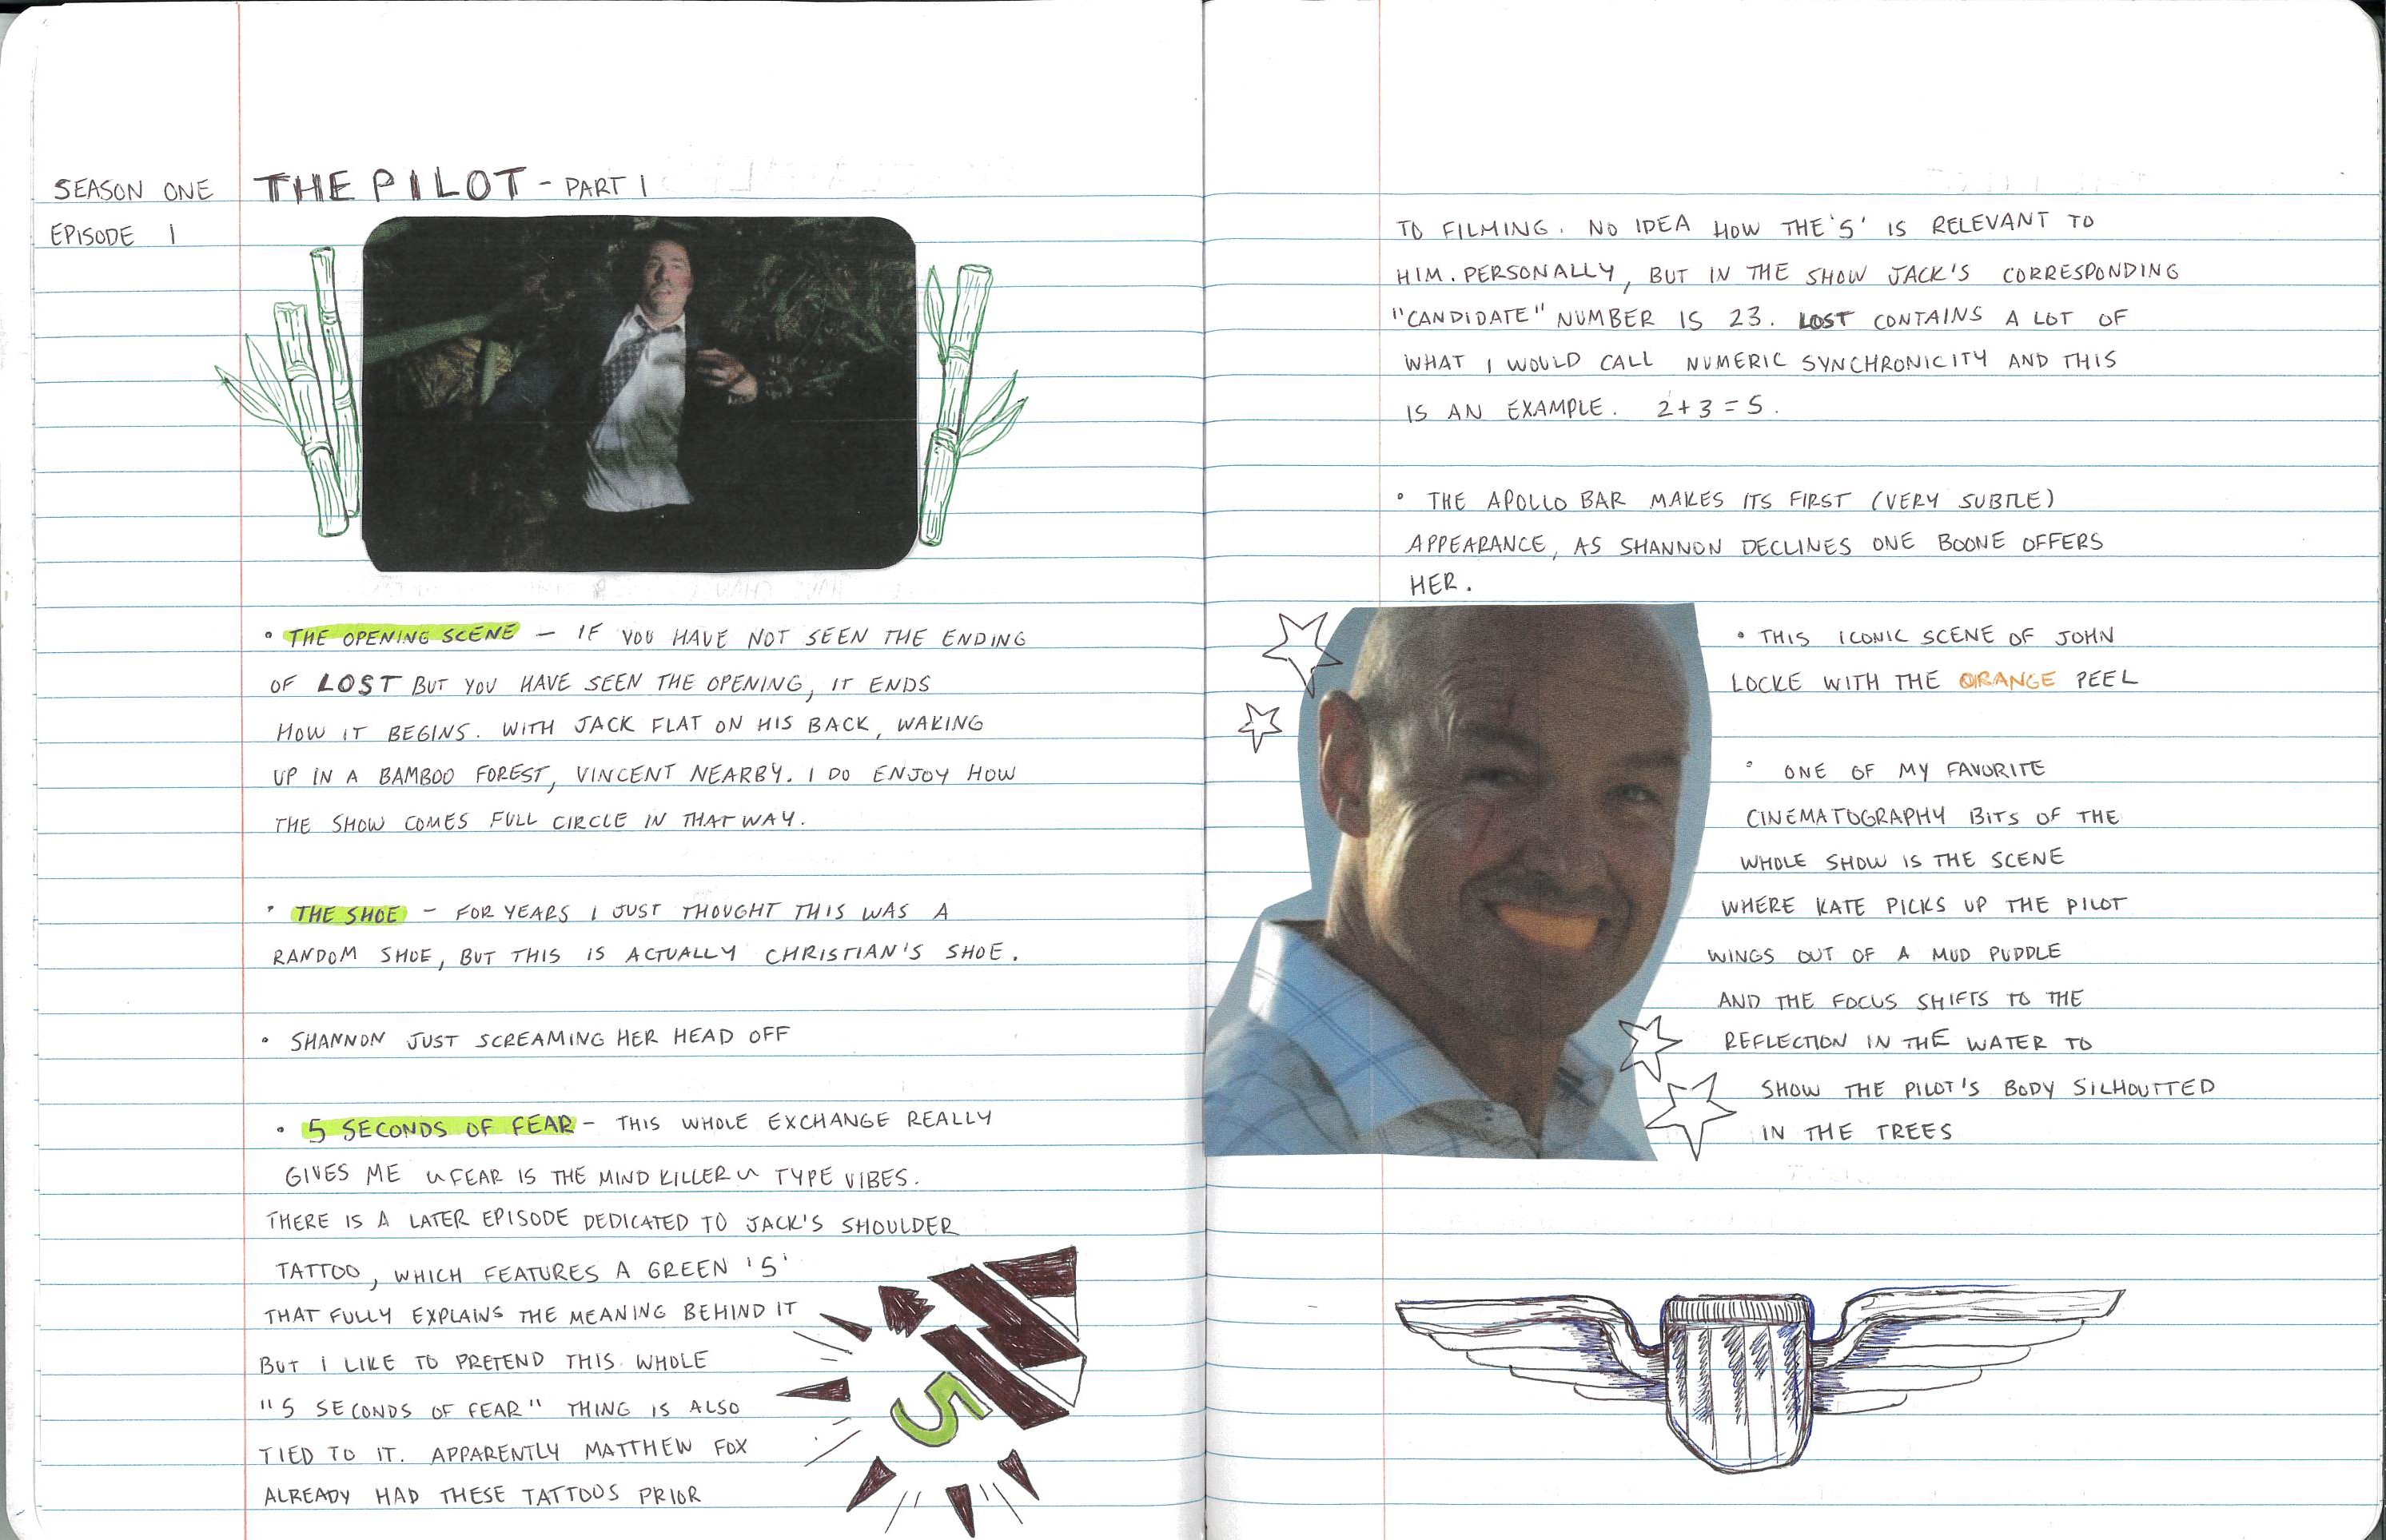 SEASON ONE
EPISODE 1
THE PILOT - PART 1
• THE OPENING SCENE – IF YOU HAVE NOT SEEN THE ENDING
OF LOST BUT YOU HAVE SEEN THE OPENING, IT ENDS
HOW IT BEGINS. WITH JACK FLAT ON HIS BACK, WAKING
UP IN A BAMBOO FOREST, VINCENT NEARBY. I DO ENJOY HOW
THE SHOW COMES FULL CIRCLE IN THAT WAY.
• THE SHOE – FOR YEARS I JUST THOUGHT THIS WAS A
RANDOM SHOE, BUT THIS IS ACTUALLY CHRISTIAN'S SHOE.
• SHANNON JUST SCREAMING HER HEAD OFF
• 5 SECONDS OF FEAR – THIS WHOLE EXCHANGE REALLY
GIVES ME ~FEAR IS THE MIND KILLER~ TYPE VIBES.
THERE IS A LATER EPISODE DEDICATED TO JACK'S SHOULDER
TATTOO, WHICH FEATURES A GREEN '5'
THAT FULLY EXPLAINS THE MEANING BEHIND IT
BUT I LIKE TO PRETEND THIS WHOLE
"5 SECONDS OF FEAR" THING IS ALSO
TIED TO IT. APPARENTLY MATTHEW FOX
ALREADY HAD THESE TATTOOS PRIOR
5
TO FILMING. NO IDEA HOW THE '5' IS RELEVANT TO
HIM. PERSONALLY, BUT IN THE SHOW JACK'S CORRESPONDING
"CANDIDATE" NUMBER IS 23. LOST CONTAINS A LOT OF
WHAT I WOULD CALL NUMERIC SYNCHRONICITY AND THIS
IS AN EXAMPLE. 2+3=5.
• THE APOLLO BAR MAKES ITS FIRST (VERY SUBTLE)
APPEARANCE, AS SHANNON DECLINES ONE BOONE OFFERS
HER.
• THIS ICONIC SCENE OF JOHN
LOCKE WITH THE ORANGE PEEL
• ONE OF MY FAVORITE
CINEMATOGRAPHY BITS OF THE
WHOLE SHOW IS THE SCENE
WHERE KATE PICKS UP THE PILOT
WINGS OUT OF A MUD PUDDLE
AND THE FOCUS SHIFTS TO THE
REFLECTION IN THE WATER TO
SHOW THE PILOT'S BODY SILHOUTTED
IN THE TREES